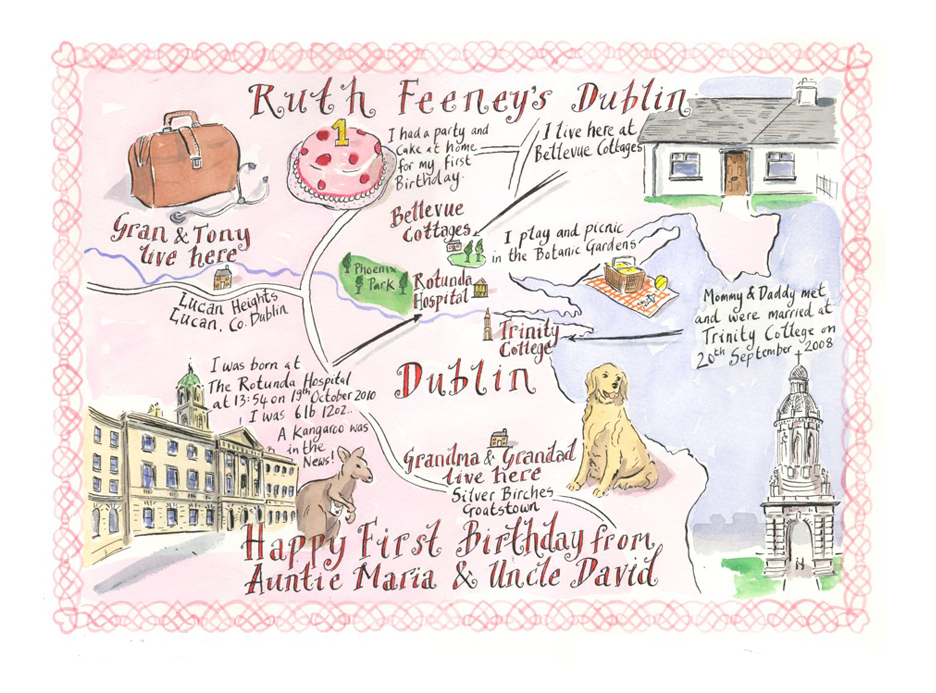 Ruth Feeney's Dublin
1
I had a party and
Cake at home
for my first
Birthday.
I live here at
Bellevue Cottages
Gran & Tony
live here
Bellevue
Cottages
I play and picnic
in the Botanic Gardens
Phoenix
Park
Rotunda
Hospital
Lucan Heights
Lucan, Co. Dublin
Trinity
College
Mommy & Daddy met
and were married at
Trinity College on
20th September 2008
I was born at
The Rotunda Hospital
at 13:54 on 19th October 2010
I was 6lb 12oz..
A Kangaroo was
in the
News!
Dublin
Grandma & Grandad
live here
Silver Birches
Goatstown
Happy First Birthday from
Auntie Maria & Uncle David